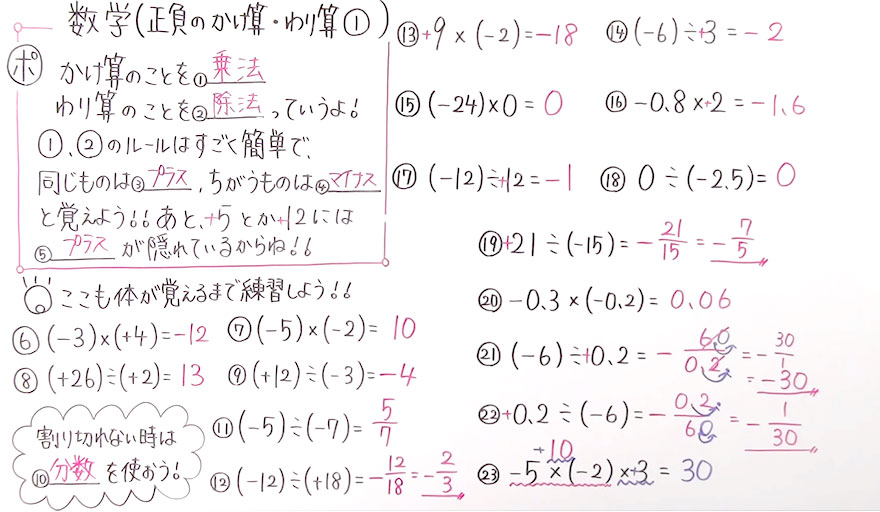 数学(正負のかけ算・わり算①)
ポ
かけ算のことを①乗法
わり算のことを②除法っていうよ!
①、②のルールはすごく簡単で、
同じものは③プラス、ちがうものは④マイナス
と覚えよう!!あと、+5とか+12には
⑤プラスが隠れているからね!!
ここも体が覚えるまで練習しよう!!
⑥(-3)×(+4)=-12
⑦(-5)×(-2)=10
⑧(+26)÷(+2)=13
⑨(+12)÷(-3)=-4
割り切れない時は
⑩分数を使おう!
⑪(-5)÷(-7)=5/7
⑫(-12)÷(+18)=-12/18=-2/3
⑬+9×(-2)=-18
⑭(-6)÷+3=-2
⑮(-24)×0=0
⑯-0.8×+2=-1.6
⑰(-12)÷+12=-1
⑱0÷(-2.5)=0
⑲+21÷(-15)=-21/15=-7/5
⑳-0.3×(-0.2)=0.06
㉑(-6)÷+0.2=-60/0.2=-30/1
=-30
㉒+0.2÷(-6)=-0.2/60=-1/30
+10
㉓-5×(-2)×+3=30